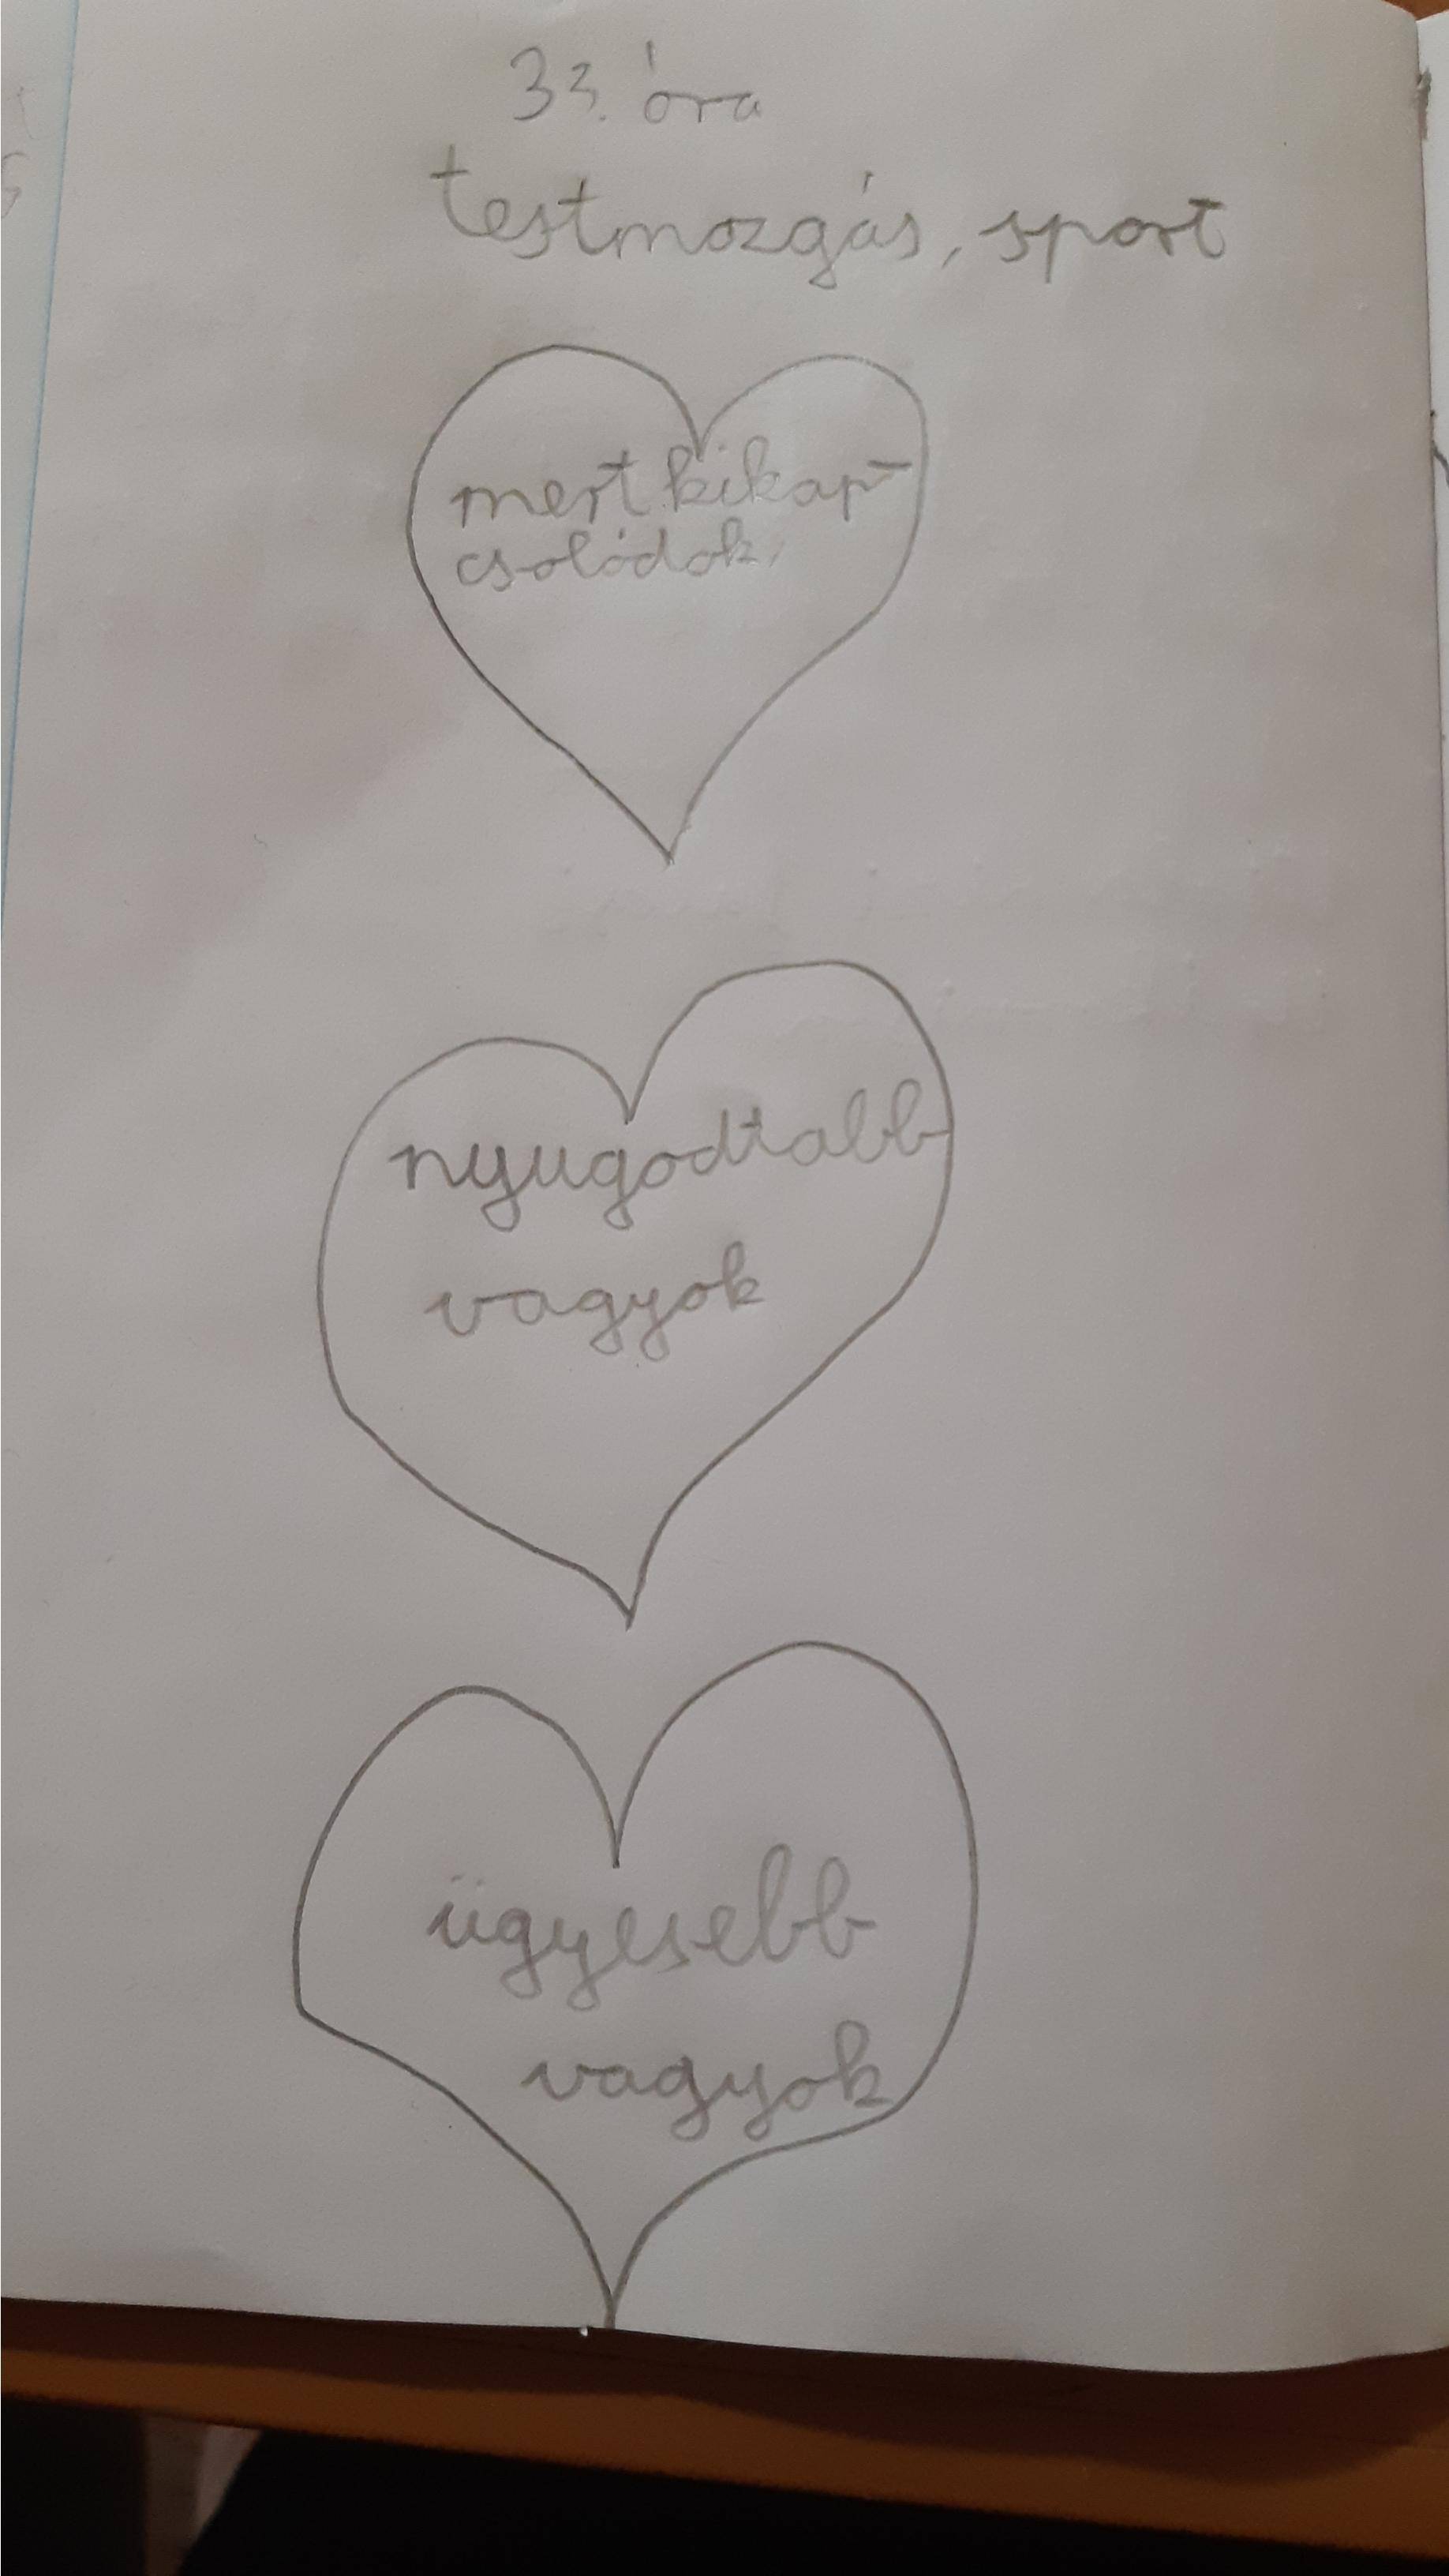 33. óra
testmozgás, sport
mert kikap-
csolódok,
nyugodtabb
vagyok
ügyesebb
vagyok